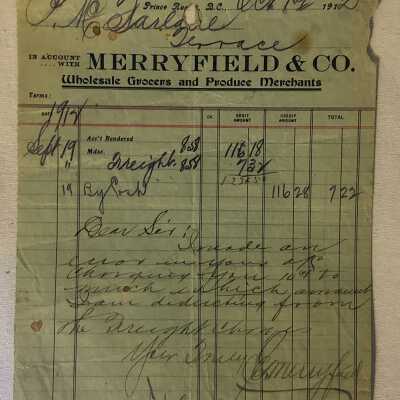 Prince Rupert, B.C. Oct 19 1912
J. McFarlane
Terrace
IN ACCOUNT WITH MERRYFIELD & CO.
Wholesale Grocers and Produce Merchants
Terms:
DATE 1912 CK DEBIT AMOUNT CREDIT AMOUNT TOTAL
Acc't Rendered
Sept 19 Mdse. 858 116 18
" Freight 858 7 32
19 By Cash 116 28 7 22
Dear Sir:
I made an
error in your a/c
charging you 10 cts to
much which amount
I am deducting from
the Freight charges
Your Truly
Merryfield